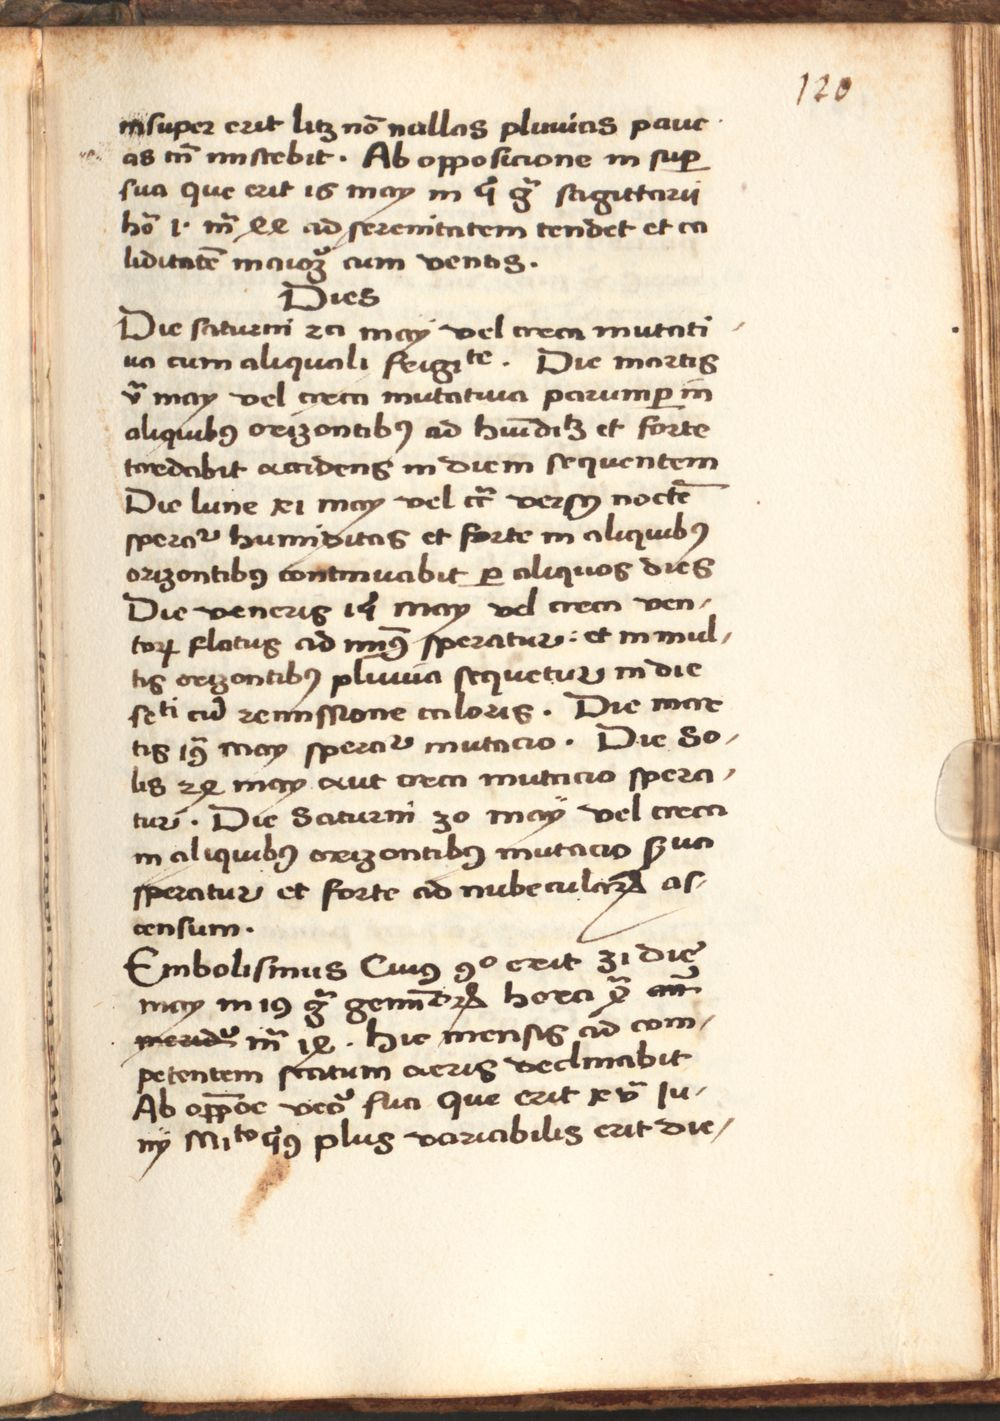 120
insuper erit licꝫ nō nullas pluvias pauc
as tn̄ miscebit. Ab opposicione in suꝑ
sua que erit 16 may in gͣ sagittarii
hͦ 1. mͣ ad serenitatem tendet et ca
liditatē cum ventis.
Dies
Die saturni 2a may vel circa mutati
va cum aliquali frigiᵗᵉ. Die martis
may vel circa mutativa parumꝑ in
aliquibꝰ orizontibꝰ ad et forte
tardabit accidens in diem sequentem
Die lune xi may vel versꝰ noctē
speraᷣ humiditas et forte in aliquibꝰ
orizontibꝰ continuabit ꝑ aliquos dies
Die veneris may vel circa ven-
toꝝ flatus ad minꝰ speratur: et in mul-
tis orizontibꝰ pluvia sequetur in die
seᵗⁱ cū remissione caloris. Die mar
tis may speraᷣ mutacio. Die So-
lis may aut circa mutacio spera-
tur. Die Saturni 30 may vel circa
in aliquibꝰ orizontibꝰ mutacio
speratur et forte ad nubecularꝝ as-
censum.
Embolismus Cuiꝰ ꝯͦ erit 31 die
may in 19 gͣ geminorꝝ hora
mͣ. hic mensis ad com-
petentem statum aeris declinabit
Ab oppͦne sua que erit xv Iu-
nij plus variabilis erit die-